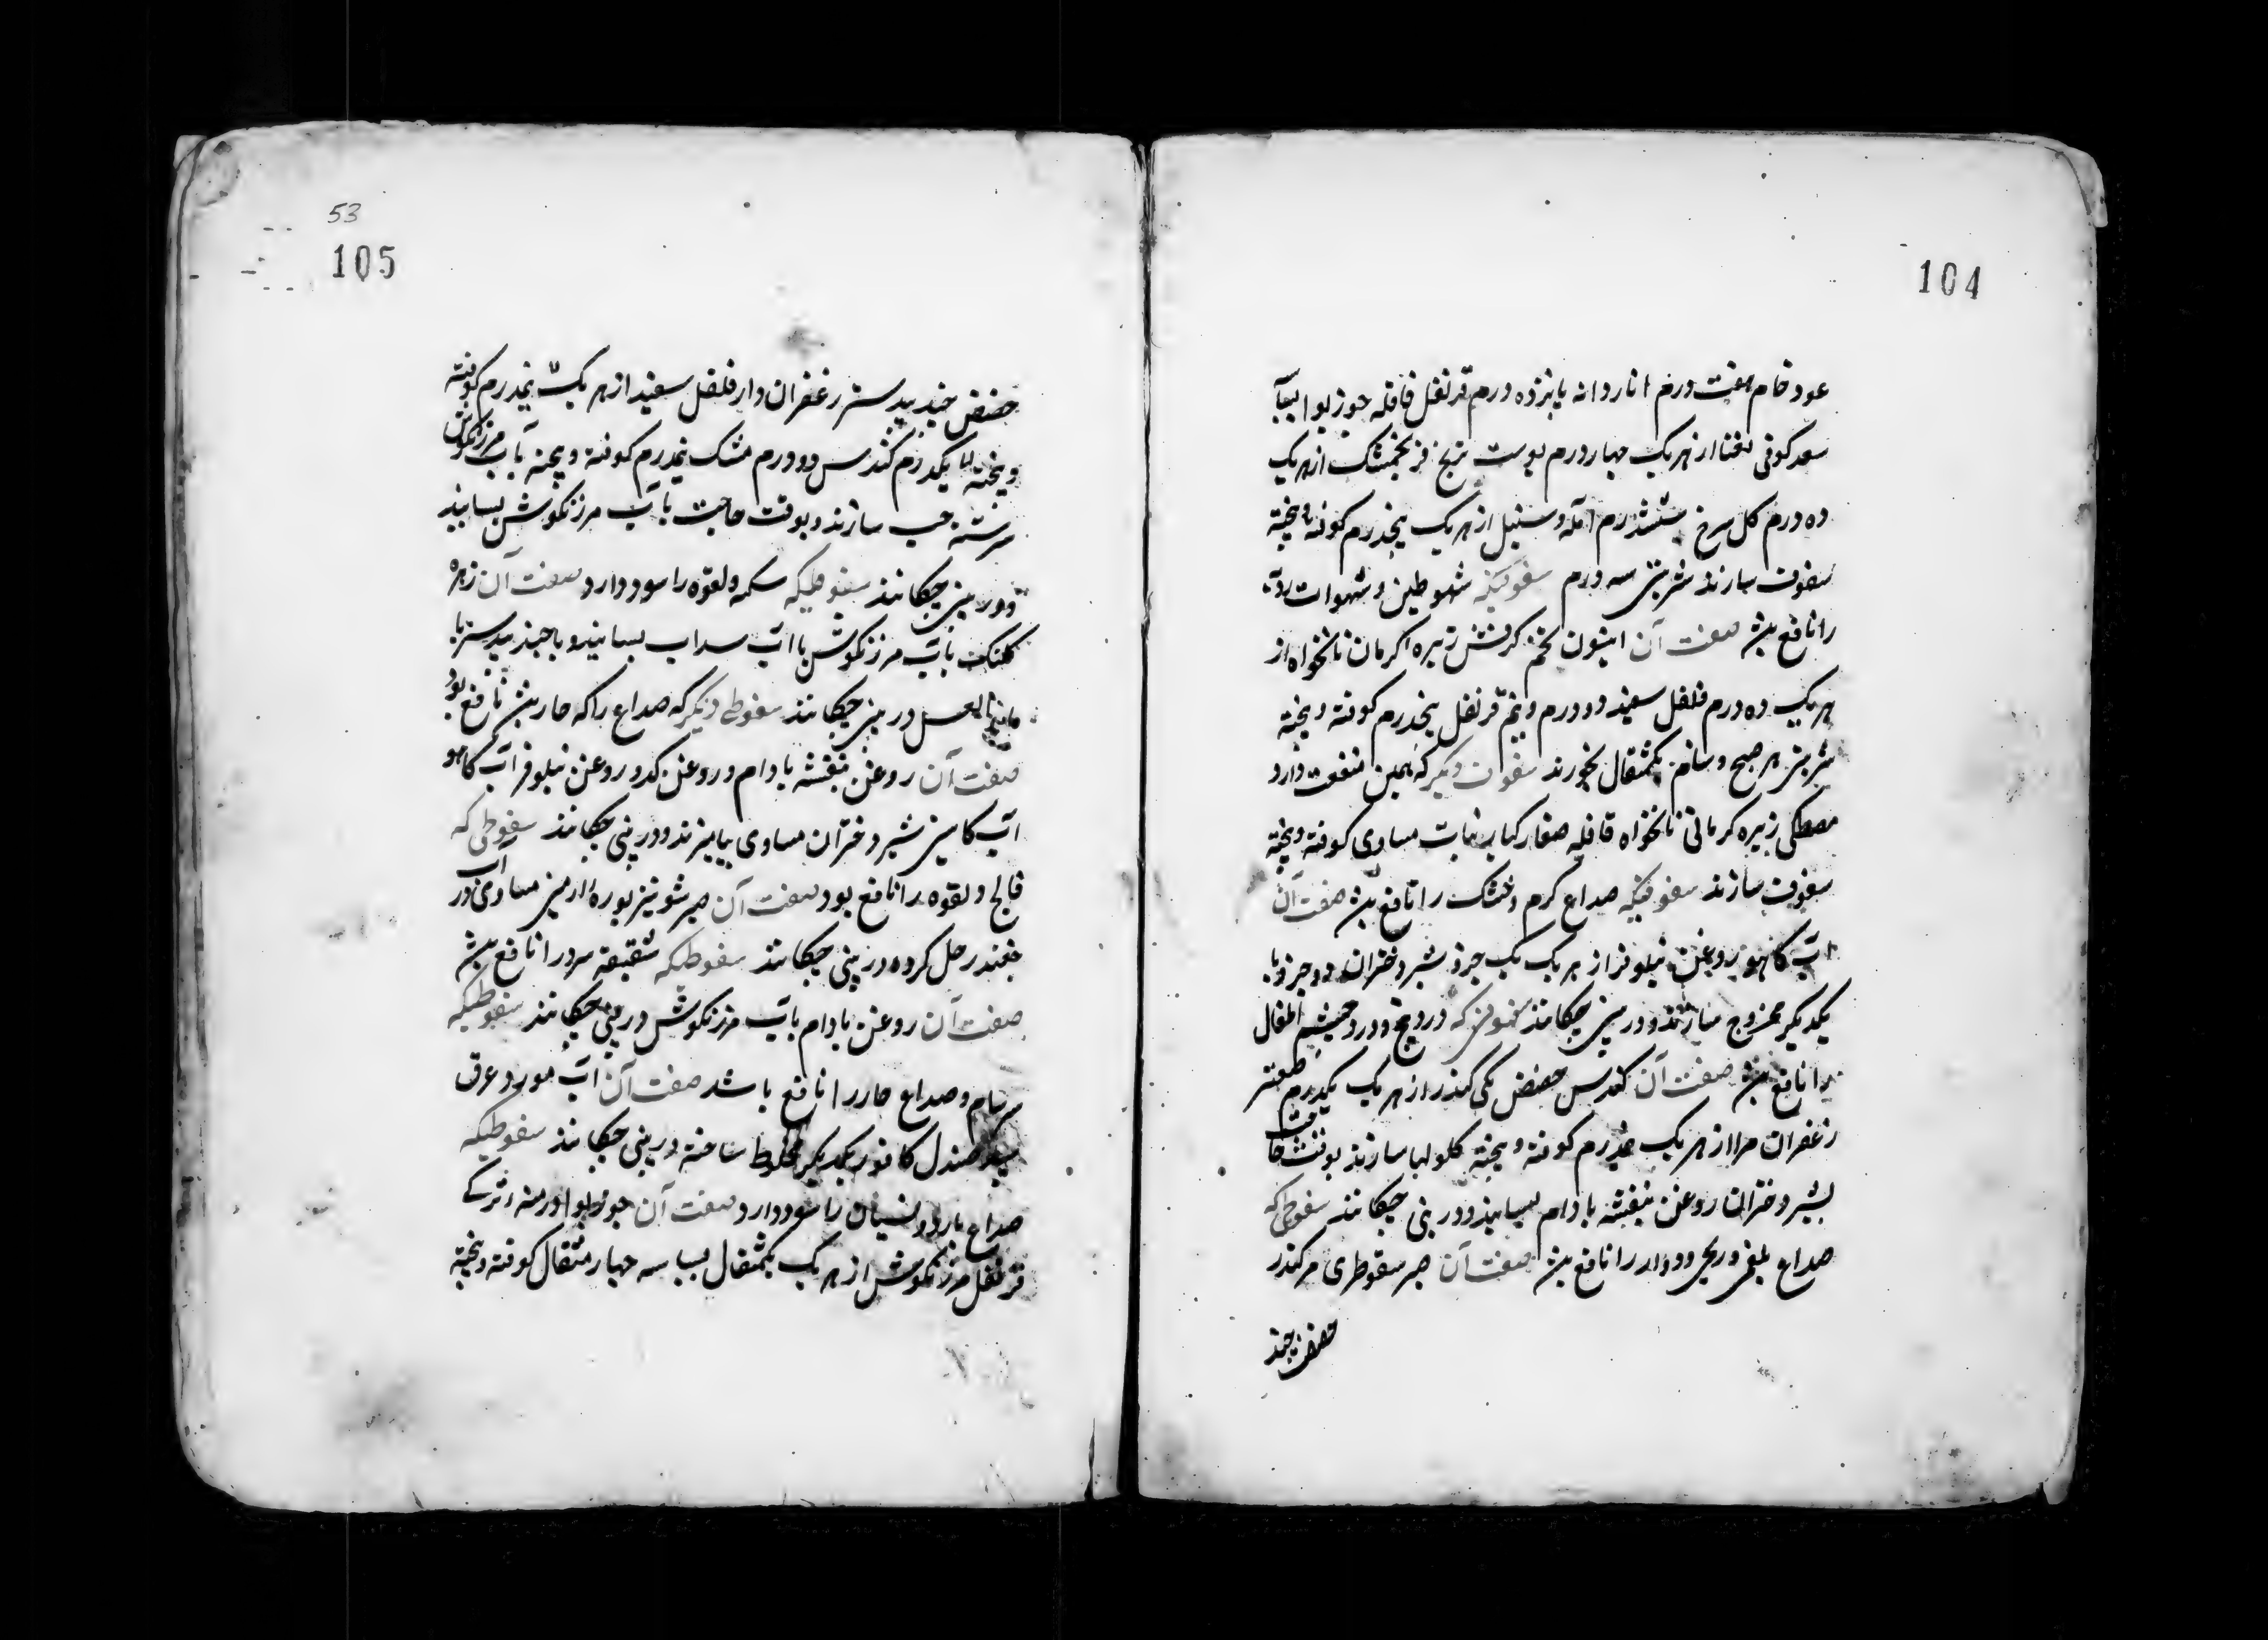 104
عود خام هفت درم انار دانه پانزده درم قرنفل قاقله جوزبوا
سعد کوفی از هر یک چهار درم پوست ترنج فرنجمشک از هر یک
ده درم کل سرخ ششدرم آمله و سنبل از هر یک پنجدرم کوفته و بیخته
سفوف سازند شربتی سه درم سفوفیکه شهوت طین و شهوات
را نافع بود صفت آن انیسون تخم کرفس زیره کرمان نانخواه از
هر یک ده درم فلفل سفید دو درم و نیم قرنفل پنجدرم کوفته و بیخته
شربتی هر صبح و شام یکمثقال بخورند سفوف دیگر که همین منفعت دارد
مصطکی زیره کرمانی نانخواه قاقله صغار کبابه نبات مساوی کوفته و بیخته
سفوف سازند صداع گرم و خشک را نافع بود صفت آن
آب کاهو روغن نیلوفر از هر یک یک جزو شیر دختران دو جزو با
یکدیگر ممزوج سازند و در بینی چکانند که درد و درد چشم اطفال
را نافع بود صفت آن کندس حضض از هر یک یکدرم
زعفران مر از هر یک نیمدرم کوفته و بیخته کلولها سازند بوقت حاجت
بشیر دختران روغن بنفشه بادام بسایند و در بینی چکانند سعوطی که
صداع بلغمی و ریحی و دوار را نافع بود صفت آن صبر سقوطری مر کندر
حضض جند
53
105
حضض جندبیدستر زعفران دار فلفل سفید از هر یک نیمدرم کوفته
و بیخته یکدرم کندس دو درم مشک نیمدرم کوفته و بیخته بآب مرزنکوش
سرشته حب سازند و بوقت حاجت بآب مرزنکوش بسایند
و در بینی چکانند سعوطیکه سکته و لقوه را سود دارد صفت آن زهره
کلنک بآب مرزنکوش یا آب سداب بسایند و با جندبیدستر با
ماء العسل در بینی چکانند سعوطی دیگر که صداع را که حار بود نافع بود
صفت آن روغن بنفشه بادام و روغن کدو روغن نیلوفر آب کاهو
آب کاسنی شیر دختران مساوی بیامیزند و در بینی چکانند سعوطی که
فالج و لقوه را نافع بود صفت آن صبر شونیز بوره ارمنی مساوی در آب
چغندر حل کرده در بینی چکانند سعوطیکه شقیقه سرد را نافع بود
صفت آن روغن بادام بآب مرزنکوش در بینی چکانند سعوطیکه
سرسام و صداع حار را نافع باشد صفت آن آب مورد عرق
بید صندل کافور یکدیگر مخلوط ساخته در بینی چکانند سعوطیکه
صداع بارد و نسیان را سود دارد صفت آن جوزبوا
قرنفل مرزنکوش از هر یک یکمثقال بسباسه چهار مثقال کوفته و بیخته